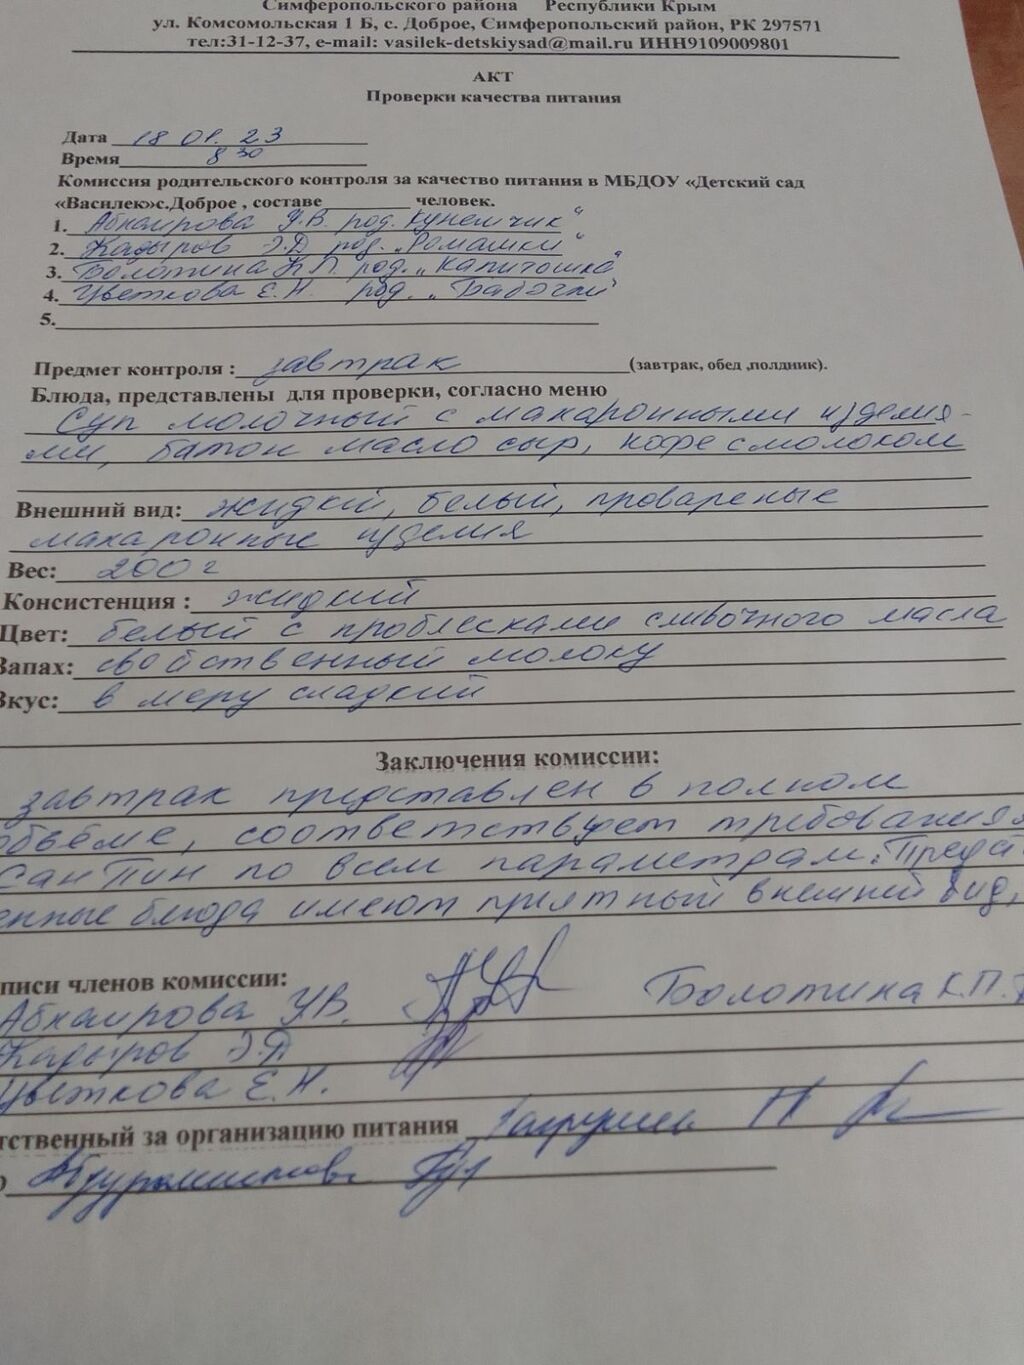 Симферопольского района Республики Крым
ул. Комсомольская 1 Б, с. Доброе, Симферопольский район, РК 297571
тел:31-12-37, e-mail: vasilek-detskiysad@mail.ru ИНН9109009801
АКТ
Проверки качества питания
Дата 18 01. 23
Время 8 30
Комиссия родительского контроля за качество питания в МБДОУ «Детский сад
«Василек»с.Доброе , составе человек.
1. Абкаирова У.В. род.
2. Кадыров Э.Д род. „Ромашки"
3. Болотина К.П. род. „Капитошка"
4. Цветкова Е.Н. род. „Бабочки"
5.
Предмет контроля : завтрак (завтрак, обед ,полдник).
Блюда, представлены для проверки, согласно меню
Суп молочный с макаронными изделия-
ми, батон масло сыр, кофе с молоком
Внешний вид: жидкий, белый, провареные
макаронные изделия
Вес: 200 г
Консистенция : жидкий
Цвет: белый с проблесками сливочного масла
Запах: свойственный молоку
Вкус: в меру сладкий
Заключения комиссии:
завтрак представлен в полном
объёме, соответствует требования
СанПин по всем параметрам. Предс
енные блюда имеют приятный внешний вид,
писи членов комиссии:
Абкаирова У.В. Болотина К.П.
Кадыров Э.Д
Цветкова Е.Н.
тственный за организацию питания